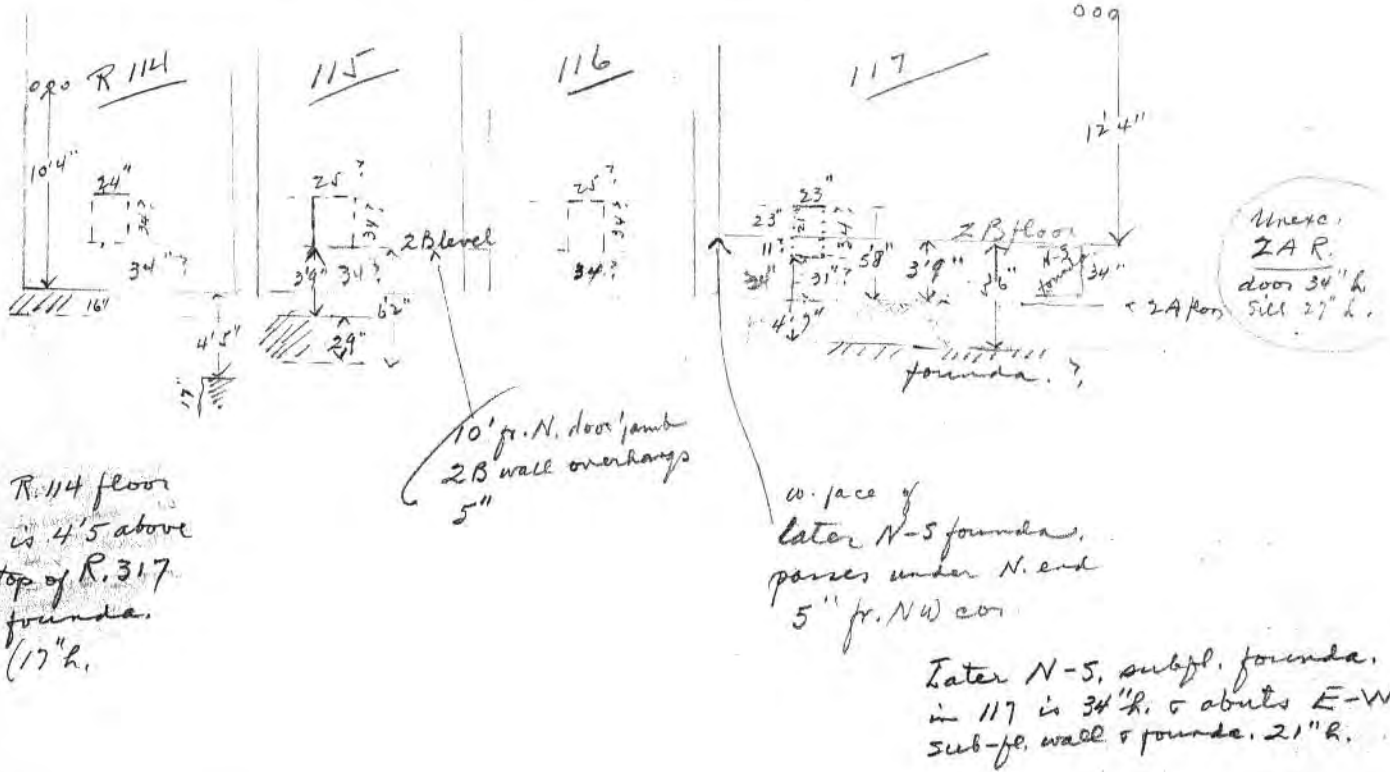 R 114
115
116
117
10'4"
24"
34"?
16"
4'5"
17"
25?
34?
34?
2B level
3'9"
6'2"
29"
25?
34?
34?
12'4"
23"
23"
11?
34"
31"?
4'9"
58"
2B floor
3'9"
36"
N-S
founda
34"
2A floor
founda. ?
Unexc.
2 A R.
door 34" h.
sill 27" h.
10' fr. N. door jamb
2B wall overhangs
5"
R. 114 floor
is 4'5 above
top of R. 317
founda.
(17" h.
w. face of
later N-S founda.
passes under N. end
5" fr. NW cor
Later N-S, subfl. founda.
in 117 is 34" h. & abuts E-W
sub-fl. wall & founda. 21" h.